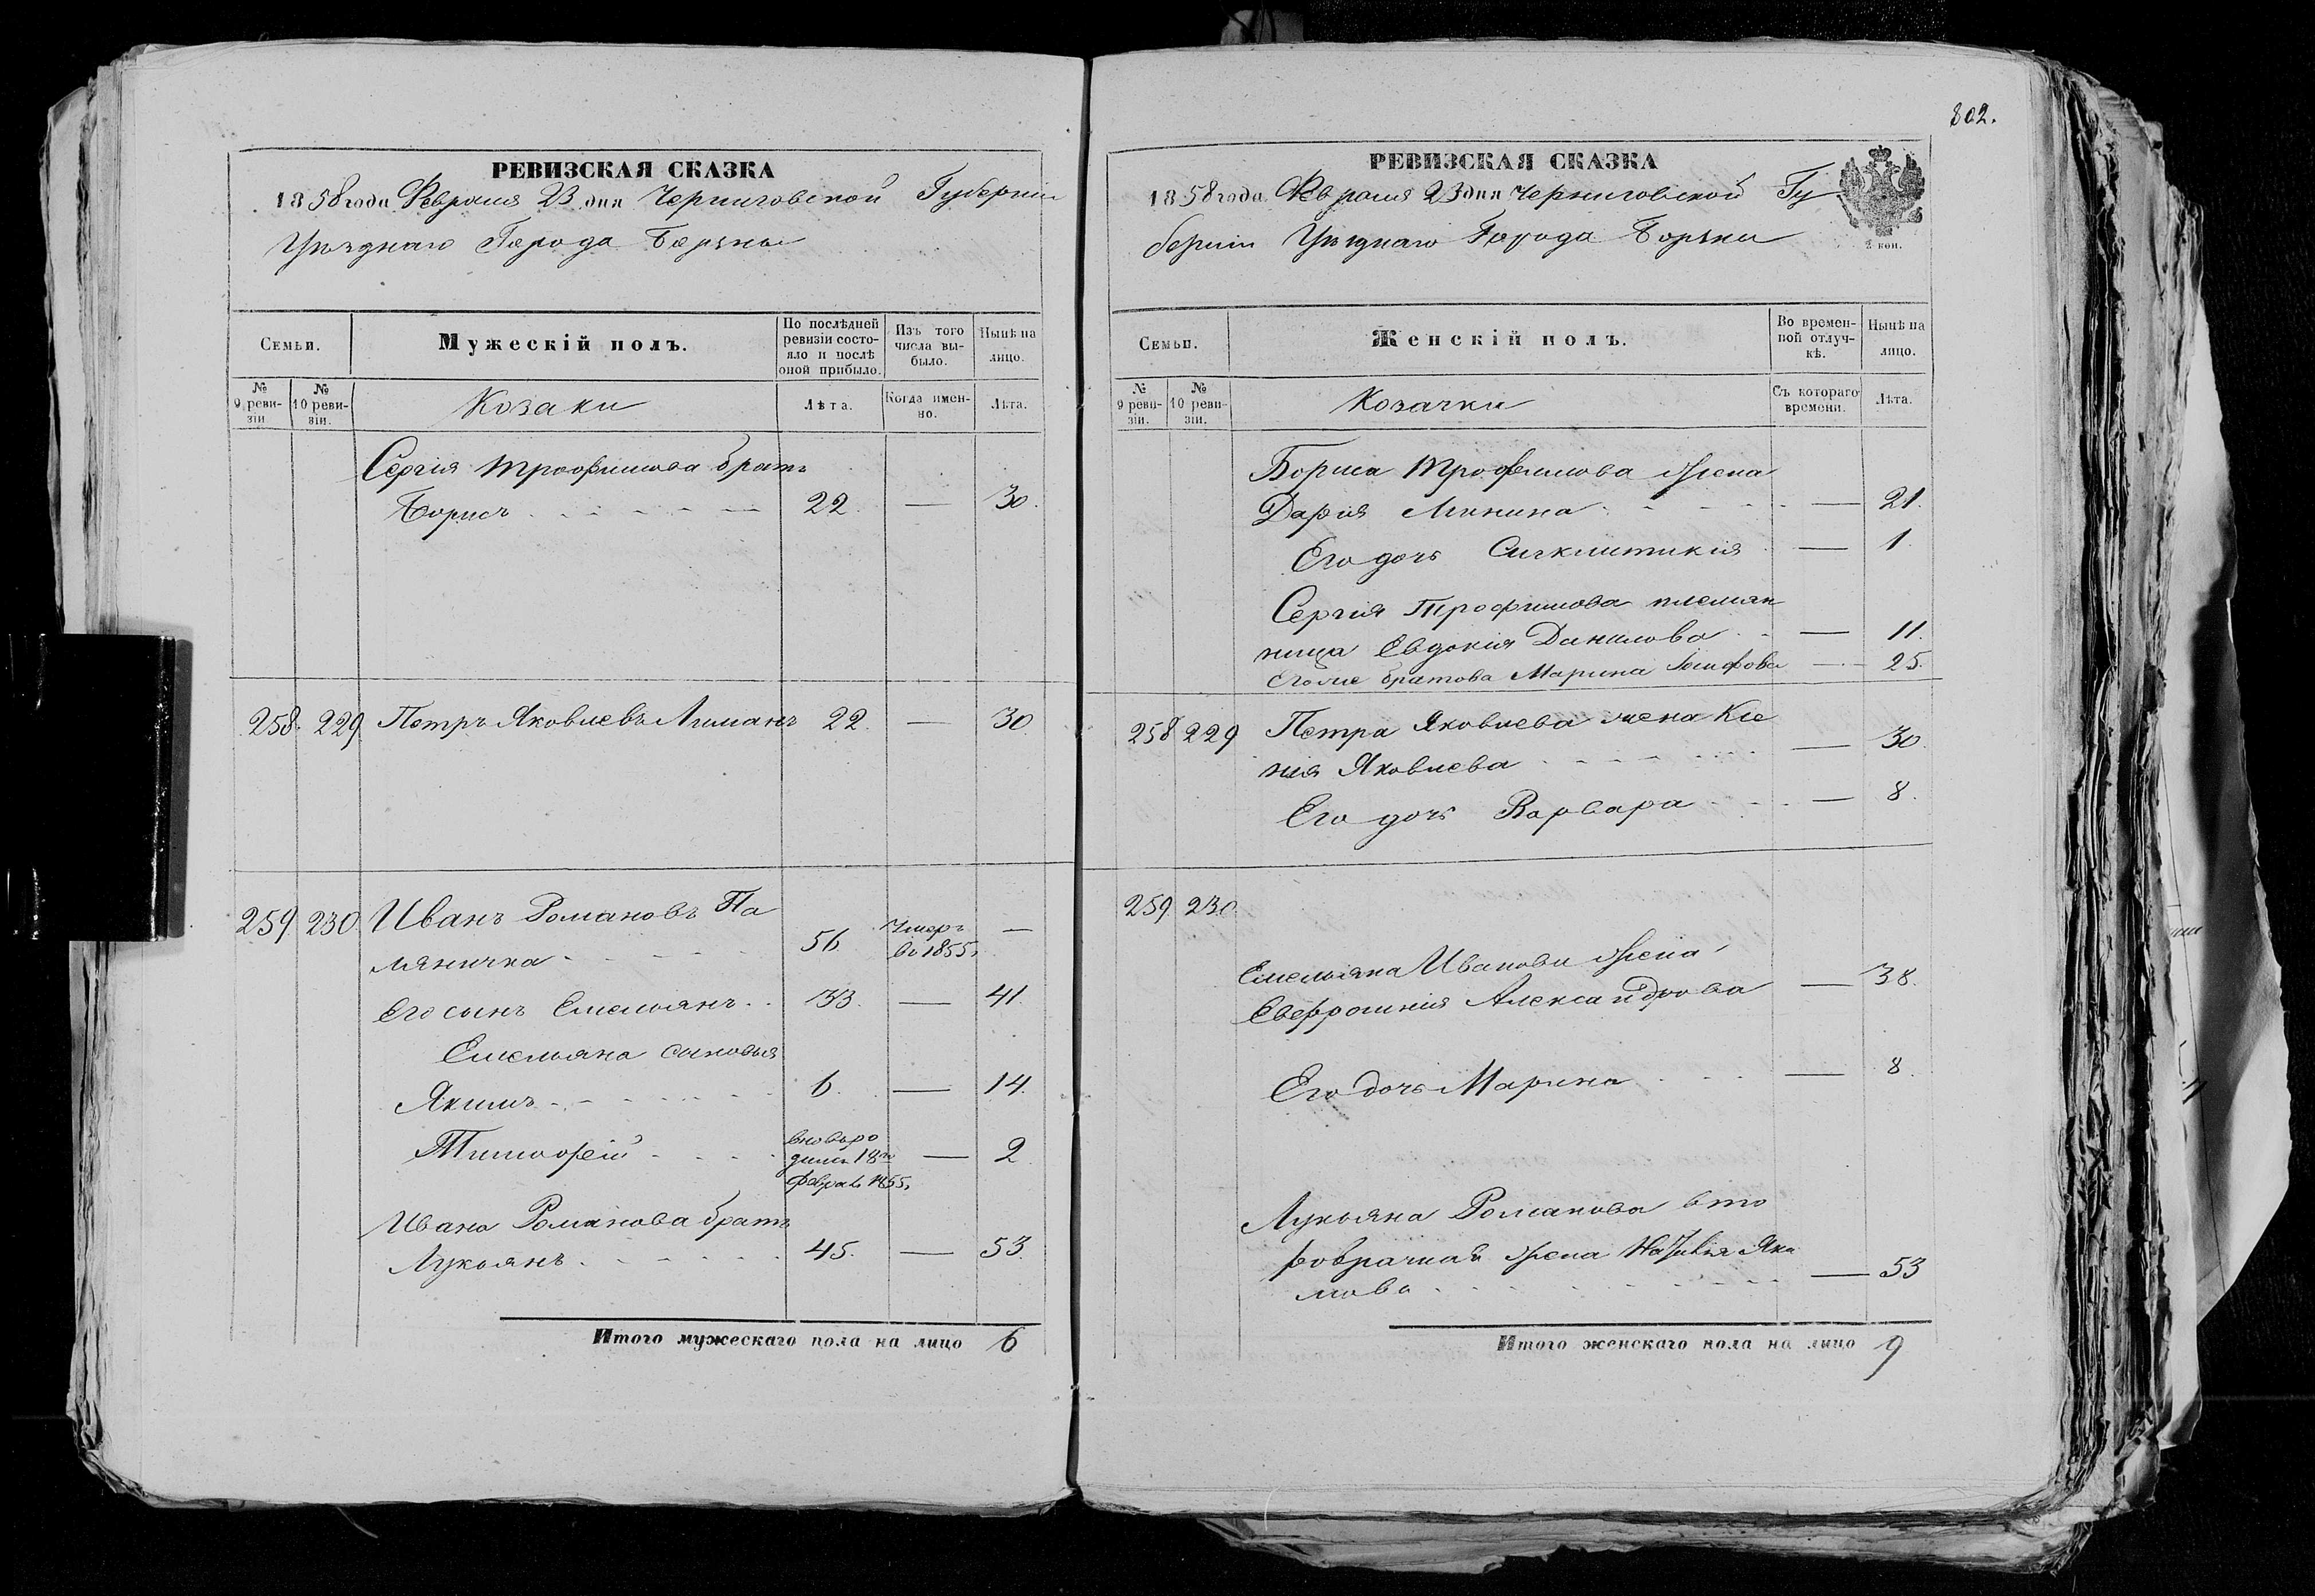 802.
РЕВИЗСКАЯ СКАЗКА
1858 года Февраля 23 дня Черниговской Губерніи
Уѣзднаго Города Борзны
Семьи.
Мужескій полъ.
По послѣдней ревизіи состояло и послѣ оной прибыло.
Изъ того числа выбыло.
Нынѣ на лицо.
№ 9 ревизіи.
№ 10 ревизіи.
Козаки
Лѣта.
Когда именно.
Лѣта.
Сергія Трофимова братъ
Борисъ 22 — 30.
258. 229 Петръ Яковлевъ Лиманъ 22 — 30
259 230 Иванъ Романовъ Па
ляничка 56 Умеръ въ 1855. —
Его сынъ Емельянъ 33. — 41.
Емельяна сыновья
Якимъ 6. — 14.
Тимофей вновь родился 18 Февраля 1855. — 2
Ивана Романова братъ
Лукьянъ 45. — 53.
Итого мужескаго пола на лицо 6
РЕВИЗСКАЯ СКАЗКА
1858 года Февраля 23 дня Черниговской Гу
берніи Уѣзднаго Города Борзны
2 коп.
Семьи.
Женскій полъ.
Во временной отлучкѣ.
Нынѣ на лицо.
№ 9 ревизіи.
№ 10 ревизіи.
Козачки
Съ котораго времени.
Лѣта.
Бориса Трофимова жена
Дарія Минина — 21.
Его дочь Синклитикія — 1.
Сергія Трофимова племян
ница Евдокія Данилова — 11.
Его же братова Марина — 25.
258 229 Петра Яковлева жена Ксе
нія Яковлева — 30.
Его дочь Варвара — 8.
259 230
Емельяна Иванова жена
Евфросинія Александрова — 38.
Его дочь Марина — 8.
Лукьяна Романова вто
робрачная жена Яки
мова — 53
Итого женскаго пола на лицо 9